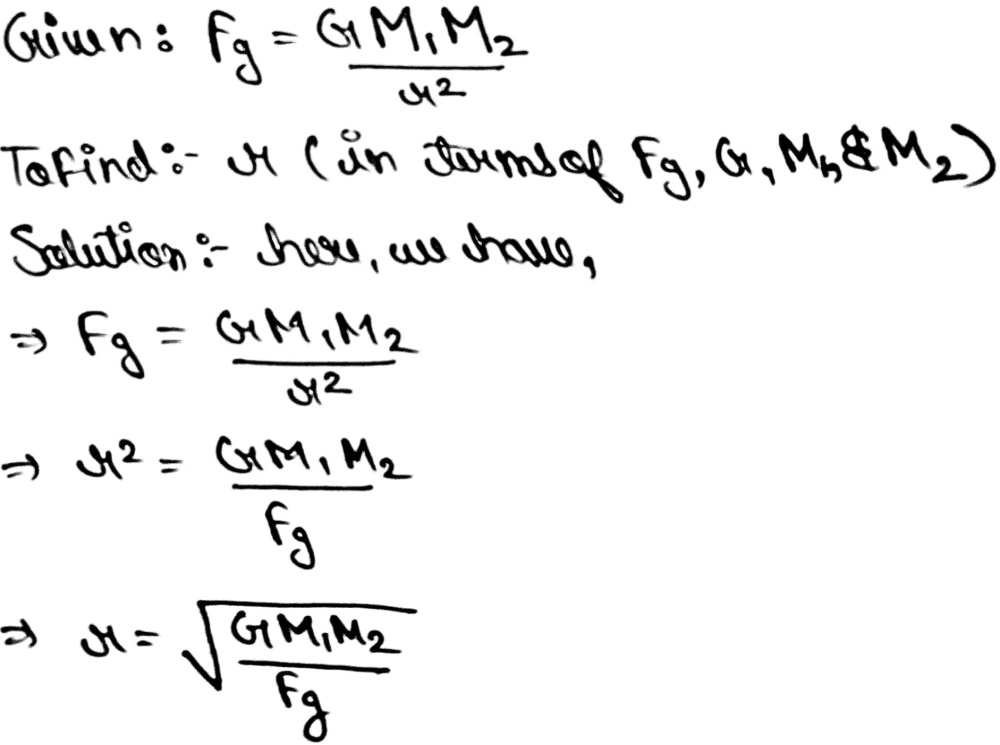 Given: Fg = GM₁M₂/r²
To find:- r (in terms of Fg, G, M₁, & M₂)
Solution:- here, we have,
⇒ Fg = GM₁M₂/r²
⇒ r² = GM₁M₂/Fg
⇒ r = √(GM₁M₂/Fg)